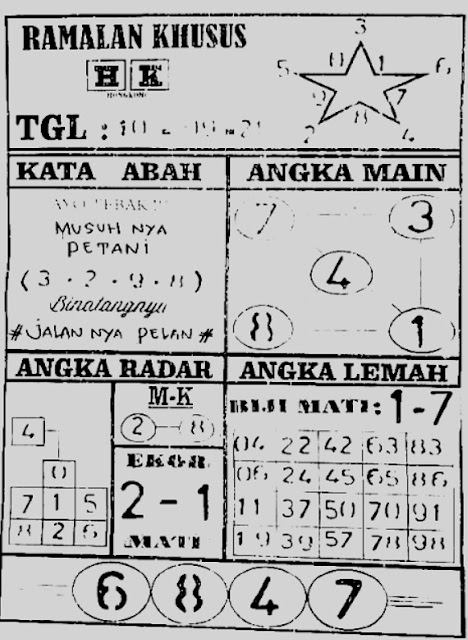 RAMALAN KHUSUS
H K
HONGKONG
3
5 0 1 6
9 7
2 8 4
TGL :
KATA ABAH
MUSUH NYA
PETANI
(3 · 2 · 9 · 8)
Binatangnya
# JALAN NYA PELAN #
ANGKA MAIN
7 3
4
8 1
ANGKA RADAR
4
0
7 1 5
8 2 6
M-K
2 8
EKOR
2 - 1
MATI
ANGKA LEMAH
BIJI MATI: 1-7
04 22 42 63 83
06 24 45 65 86
11 37 50 70 91
19 39 57 78 98
6 8 4 7